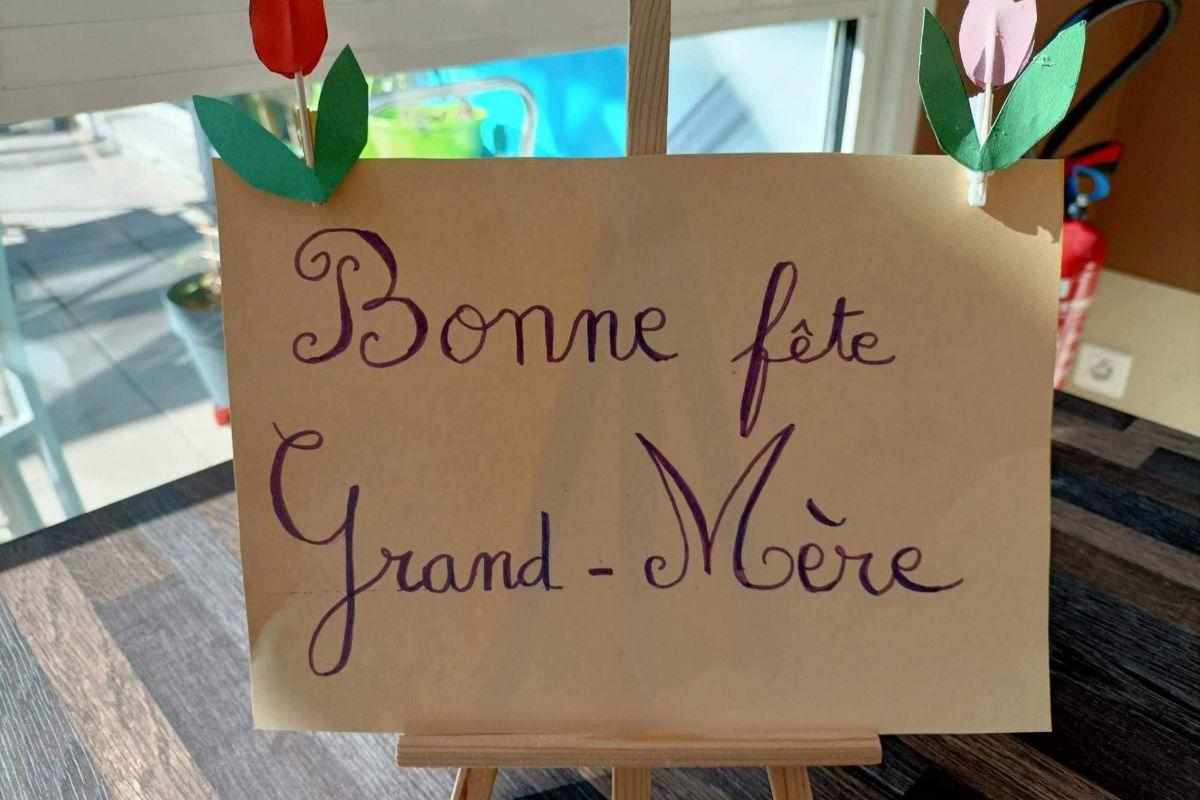 Bonne fête
Grand-Mère